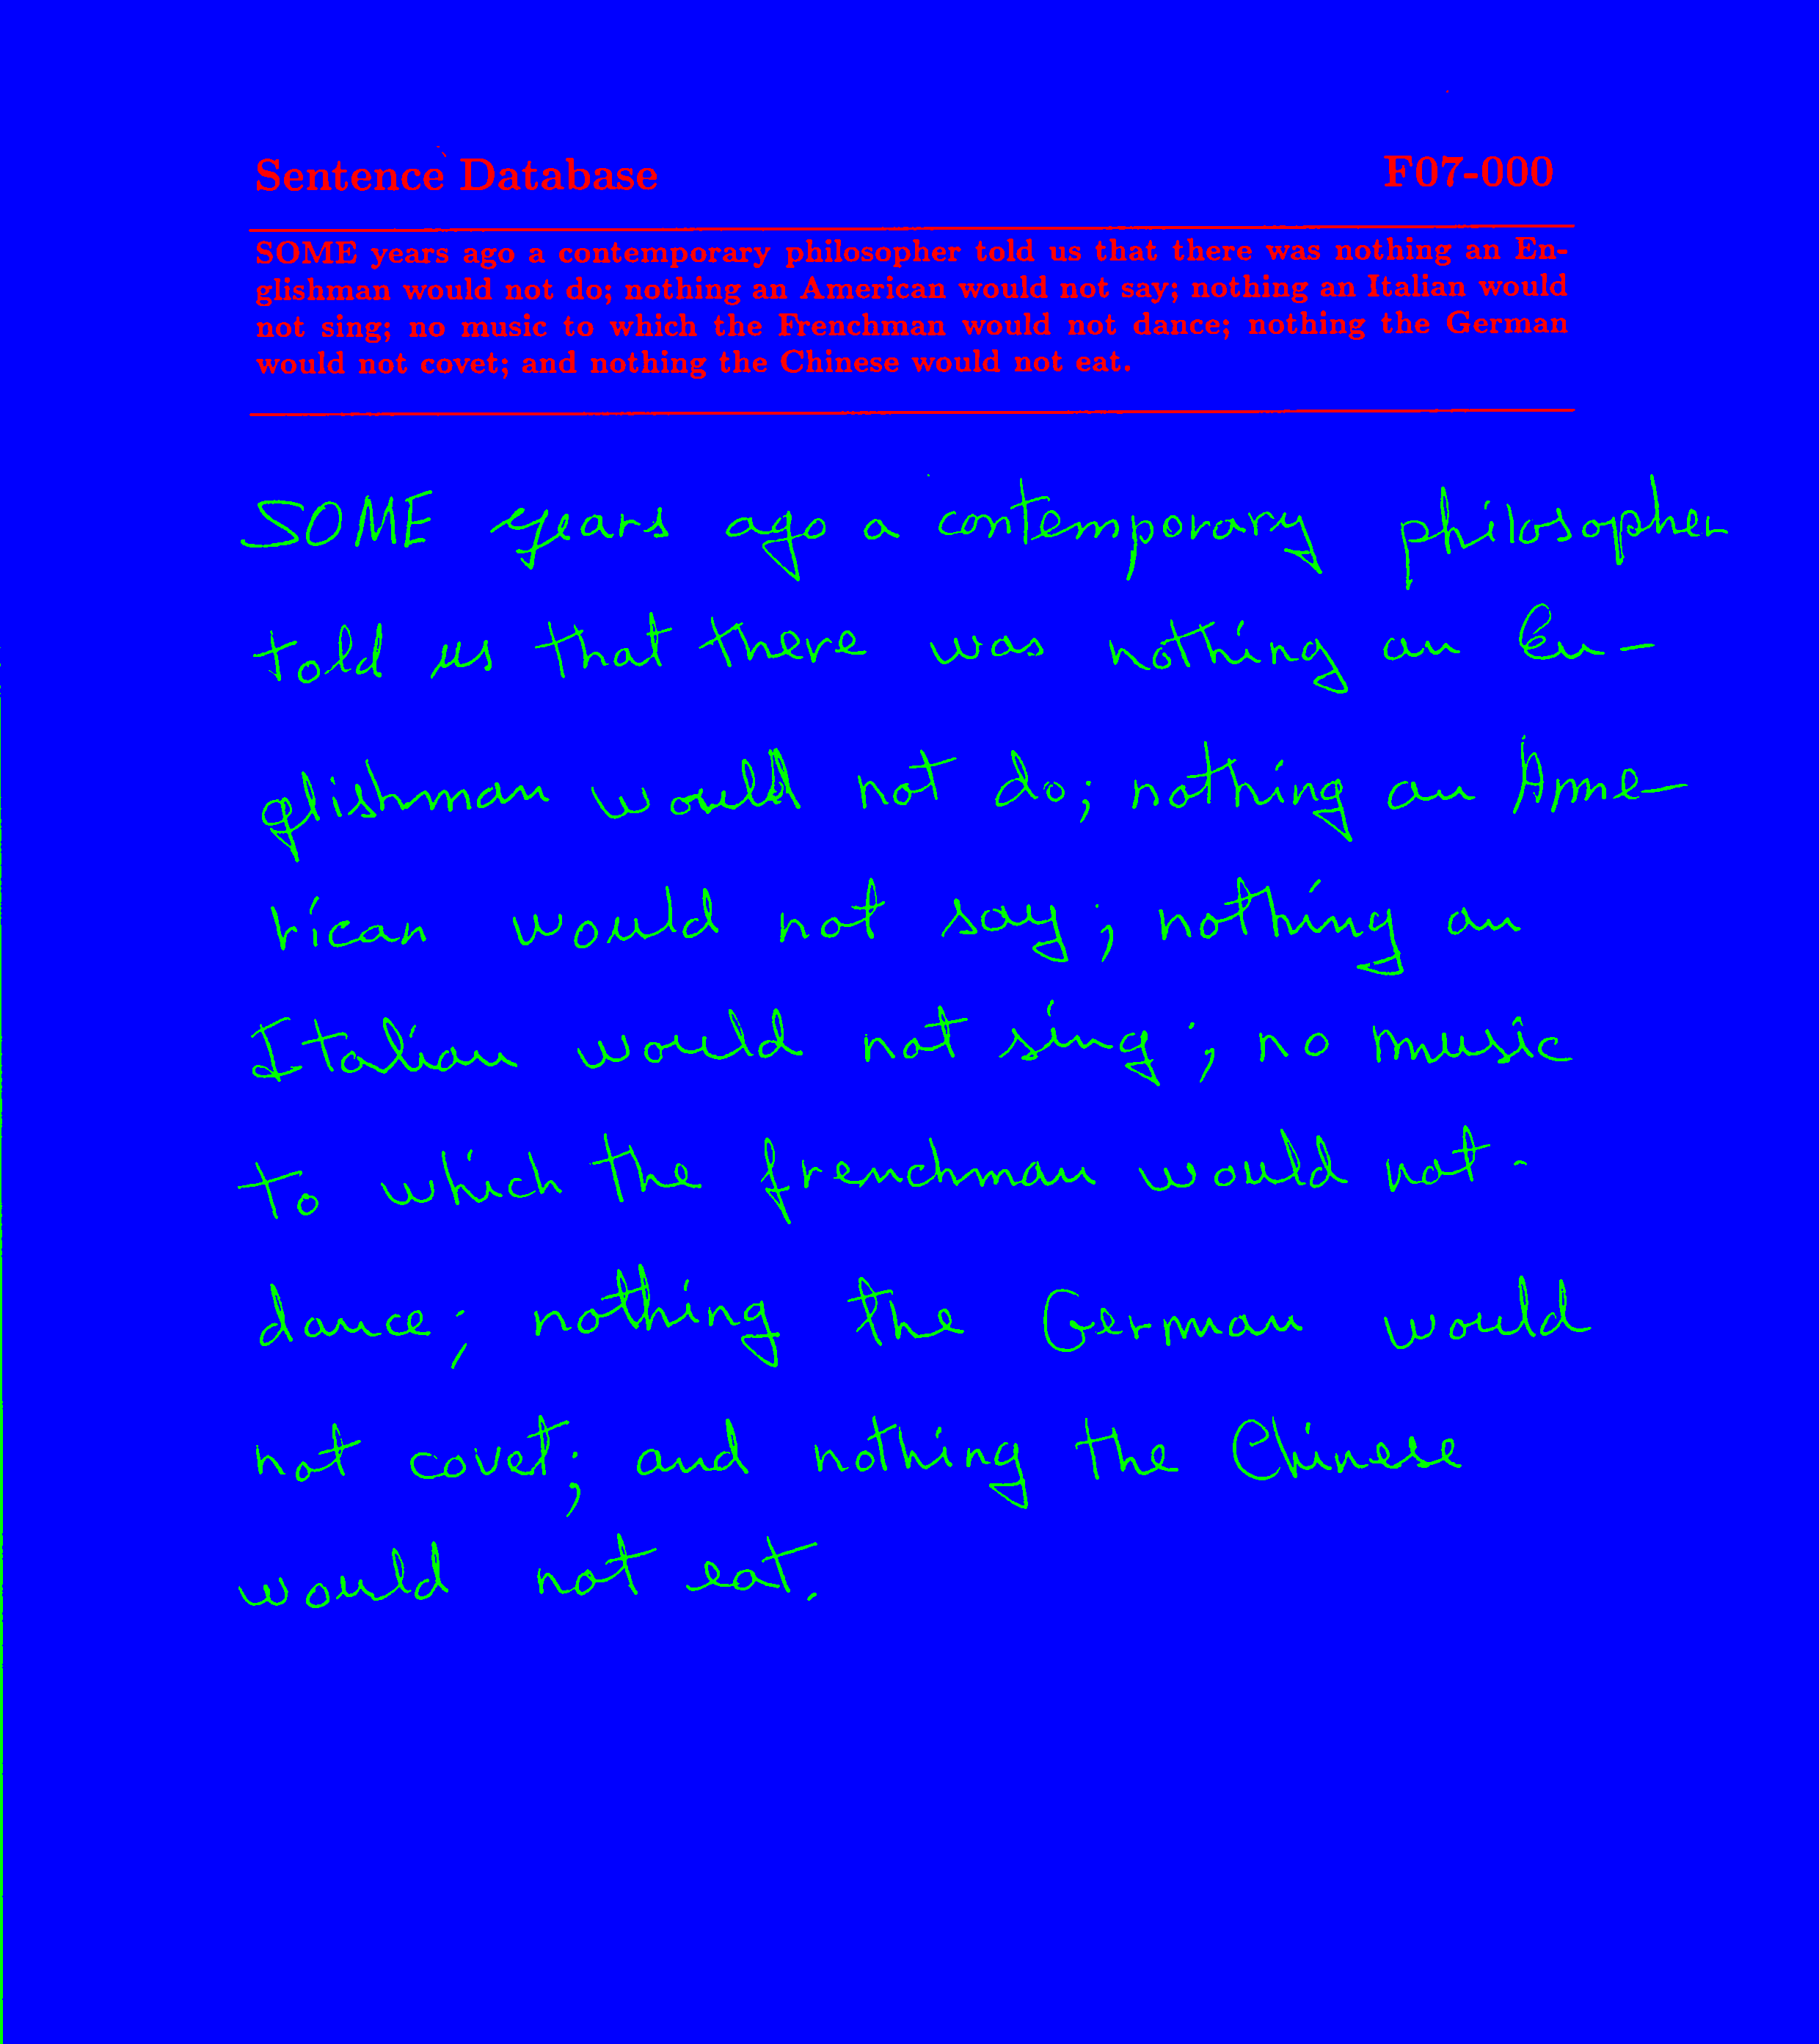 Sentence Database F07-000
SOME years ago a contemporary philosopher told us that there was nothing an En-
glishman would not do; nothing an American would not say; nothing an Italian would
not sing; no music to which the Frenchman would not dance; nothing the German
would not covet; and nothing the Chinese would not eat.
SOME years ago a contemporary philosopher
told us that there was nothing an En-
glishman would not do; nothing an Ame-
rican would not say; nothing an
Italian would not sing; no music
to which the frenchman would not
dance; nothing the German would
not covet; and nothing the Chinese
would not eat.